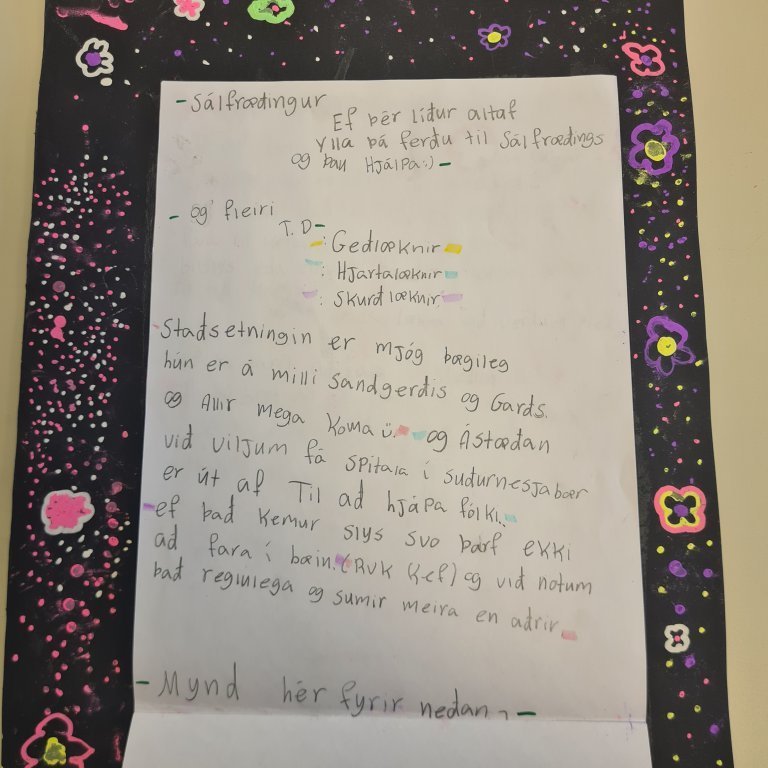 - Sálfrædingur
Ef þér lídur altaf
ylla þá ferdu til Sálfrædings
og þau Hjálpa:) -
- og fleiri
T.D-
: Gedlæknir
: Hjartalæknir
: Skurdlæknir
Stadsetningin er mjóg þægileg
hún er á milli Sandgerdis og Gards.
og Allir mega Koma ü. og Ástædan
vid viljum fá spitala í sudurnesjabær
er út af Til ad hjápa fólki.
ef þad Kemur slys svo þarf ekki
ad fara í bæin. (RVK Kef) og vid notum
þad reginlega og sumir meira en adrir.
- Mynd hér fyrir nedan -